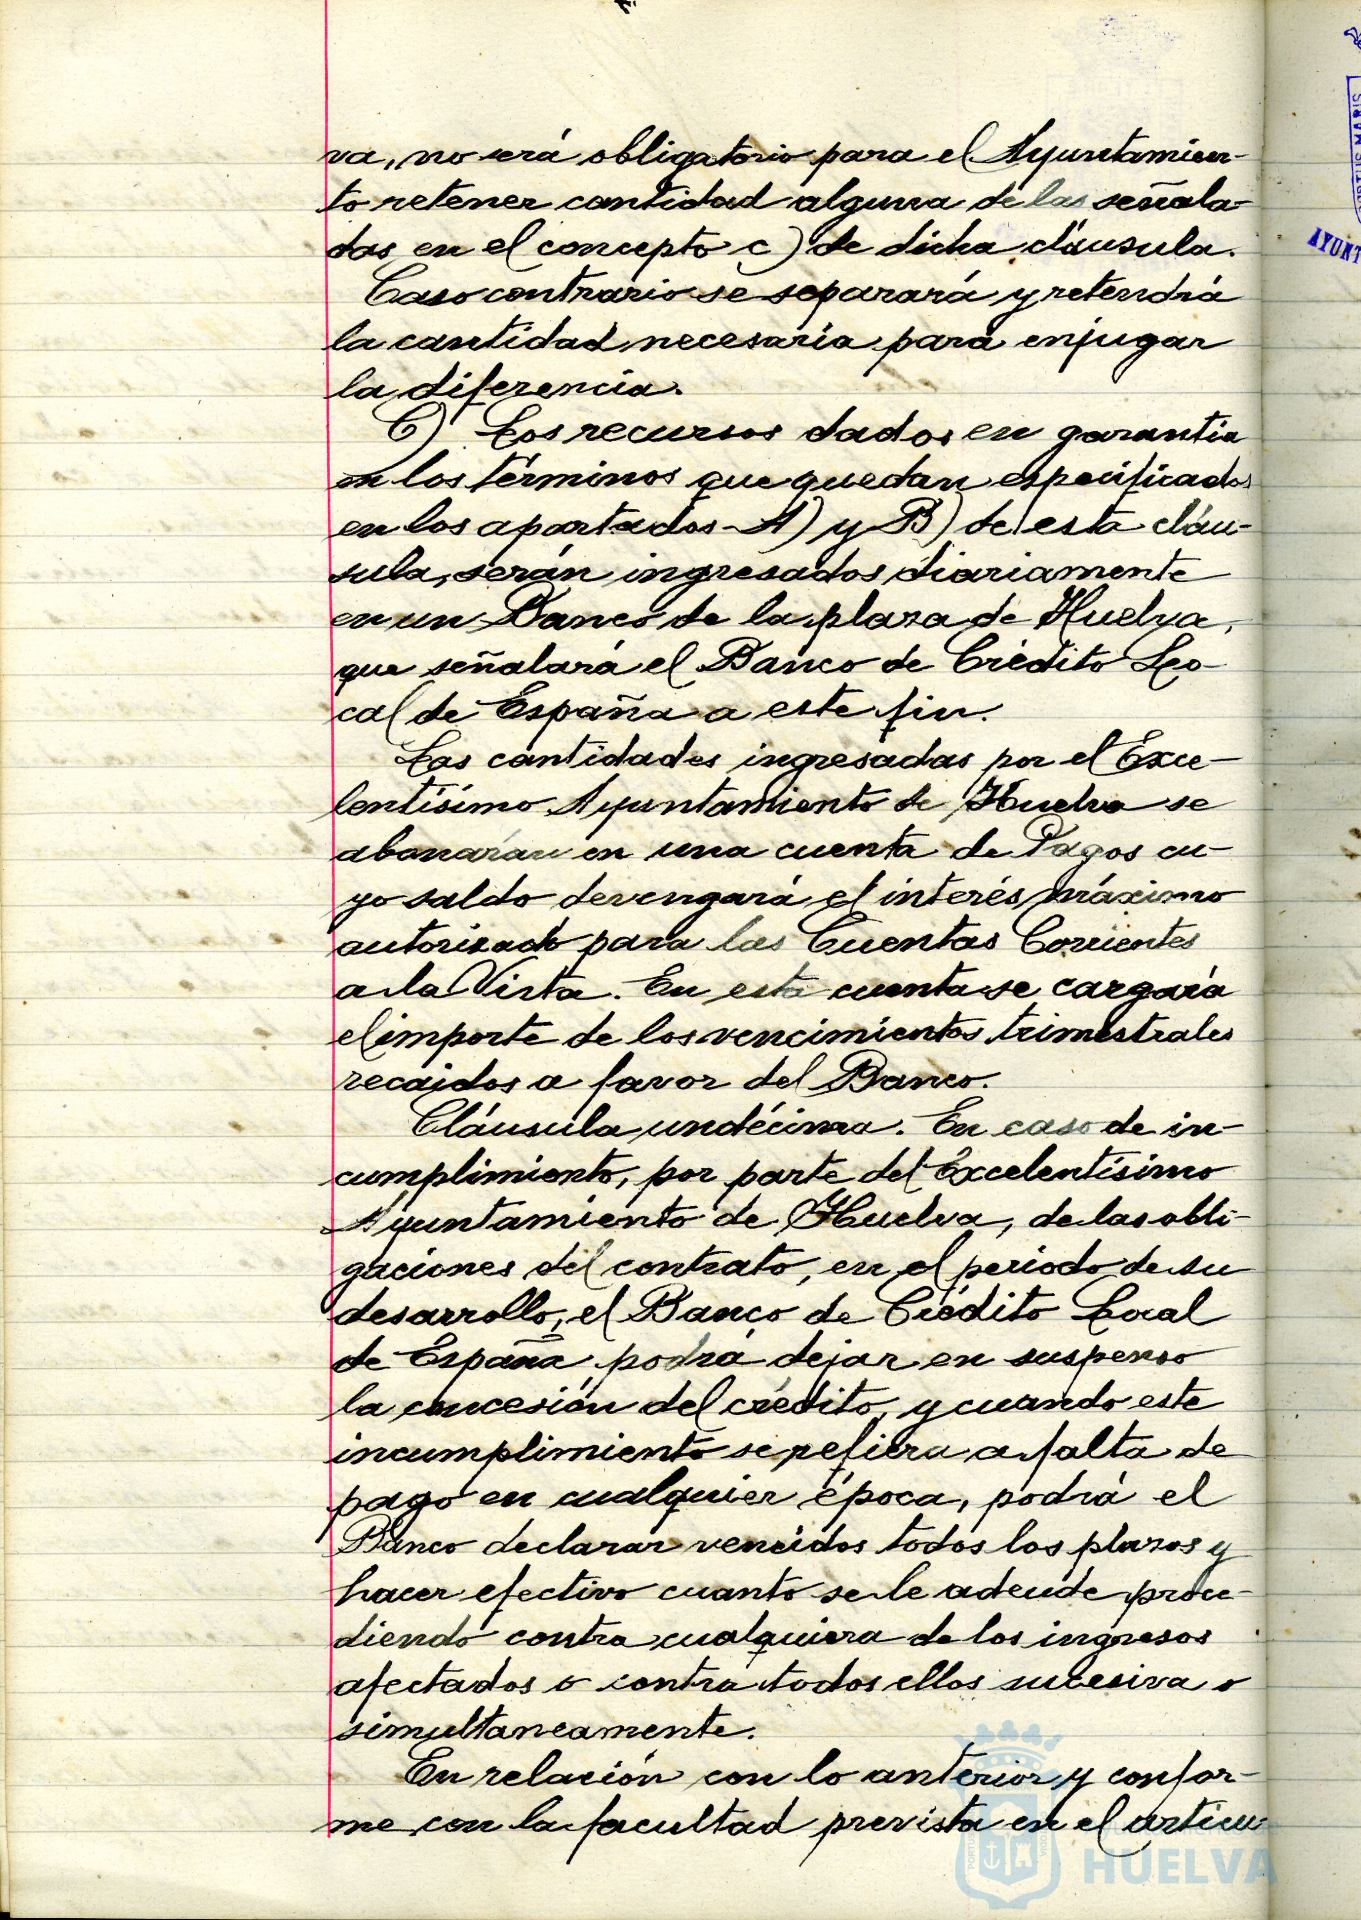 va, no será obligatorio para el Ayuntamien-
to retener cantidad alguna de las señala-
das en el concepto c) de dicha cláusula.
Caso contrario se separará y retendrá
la cantidad necesaria para enjugar
la diferencia.
C) Los recursos dados en garantía
en los términos que quedan especificados
en los apartados A) y B) de esta cláu-
sula, serán ingresados diariamente
en un Banco de la plaza de Huelva,
que señalará el Banco de Crédito Lo-
cal de España a este fin.
Las cantidades ingresadas por el Exce-
lentísimo Ayuntamiento de Huelva se
abonarán en una cuenta de Pagos cu-
yo saldo devengará el interés máximo
autorizado para las Cuentas Corrientes
a la Vista. En esta cuenta se cargará
el importe de los vencimientos trimestrales
recaídos a favor del Banco.
Cláusula undécima. En caso de in-
cumplimiento, por parte del Excelentísimo
Ayuntamiento de Huelva, de las obli-
gaciones del contrato, en el periodo de su
desarrollo, el Banco de Crédito Local
de España podrá dejar en suspenso
la concesión del crédito, y cuando este
incumplimiento se refiera a falta de
pago en cualquier época, podrá el
Banco declarar vencidos todos los plazos y
hacer efectivo cuanto se le adeude proce-
diendo contra cualquiera de los ingresos
afectados o contra todos ellos sucesiva o
simultaneamente.
En relación con lo anterior y confor-
me con la facultad prevista en el artícu-
HUELVA